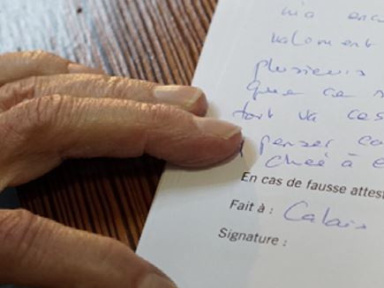 m'a enc
valoment
plusieurs
que ce
tout va ces
penser co
chez à e
En cas de fausse attest
Fait à : Calais
Signature :